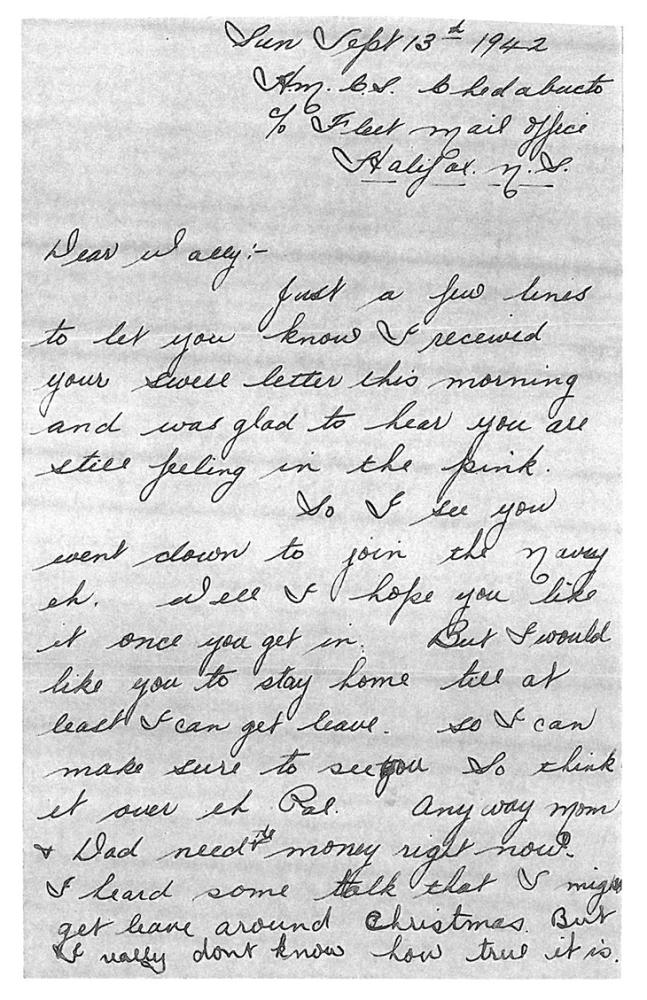 Sun Sept 13th 1942
Hm. C.S. Chedabucto
c/o Fleet mail office
Halifax. N.S.
Dear Wally:-
Just a few lines
to let you know I received
your swell letter this morning
and was glad to hear you are
still feeling in the pink.
So I see you
went down to join the Navy
eh. Well I hope you like
it once you get in. But I would
like you to stay home till at
least I can get leave. so I can
make sure to see you So think
it over eh Pal. Anyway Mom
+ Dad need the money right now.
I heard some talk that I might
get leave around Christmas. But
I really dont know how true it is.